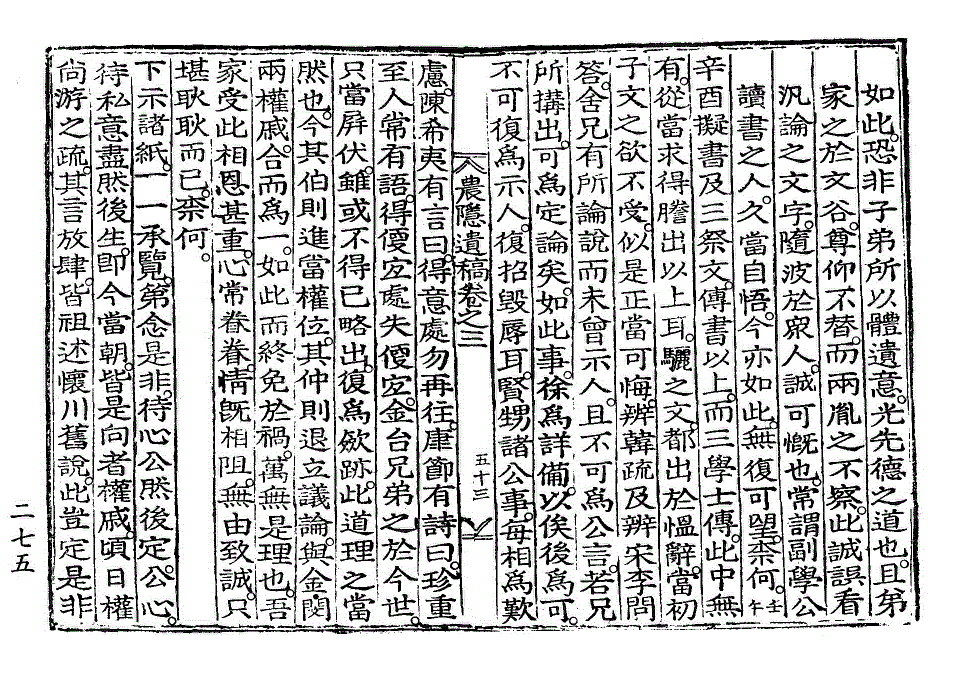 如此恐非子弟所以體遺意光先德之道也且第
家之於文谷尊仰不替而兩胤之不察此誠誤看
汎論之文字隨波於衆人誠可慨也常謂副學公
讀書之人久當自悟今亦如此無復可望柰何壬午
辛酉擬書及三祭文傳書以上而三學士傳此中無
有從當求得謄出以上耳驪之文都出於慍辭當初
子文之欲不受似是正當可悔辨韓疏及辨宋李問
答舍兄有所論說而未曾示人且不可爲公言若兄
所搆出可爲定論矣如此事徐爲詳備以俟後爲可
不可復爲示人復招毁辱耳賢甥諸公事每相爲歎
農隱遺稿卷之三
五十三
慮陳希夷有言曰得意處勿再往康節有詩曰珍重
至人常有語得便宜處失便宜金台兄弟之於今世
只當屛伏雖或不得已略出復爲斂跡此道理之當
然也今其伯則進當權位其仲則退立議論與金閔
兩權戚合而爲一如此而終免於禍萬無是理也吾
家受此相恩甚重心常眷眷情旣相阻無由致誠只
堪耿耿而已柰何
下示諸紙一一承覽第念是非待心公然後定公心
待私意盡然後生卽今當朝皆是向者權戚頃日權
尙游之疏其言放肆皆祖述懷川舊說此豈定是非
二七五